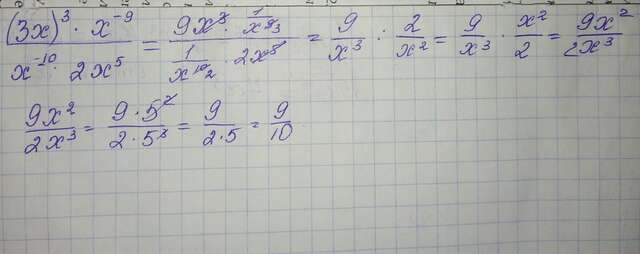 \frac{(3x)^3 \cdot x^{-9}}{x^{-10} \cdot 2x^5} = \frac{9x \cdot \frac{1}{x^{9}}}{\frac{1}{x^{10}} \cdot 2x} = \frac{9}{x^3} : \frac{2}{x^2} = \frac{9}{x^3} \cdot \frac{x^2}{2} = \frac{9x^2}{2x^3}
\frac{9x^2}{2x^3} = \frac{9 \cdot 5^2}{2 \cdot 5^3} = \frac{9}{2 \cdot 5} = \frac{9}{10}